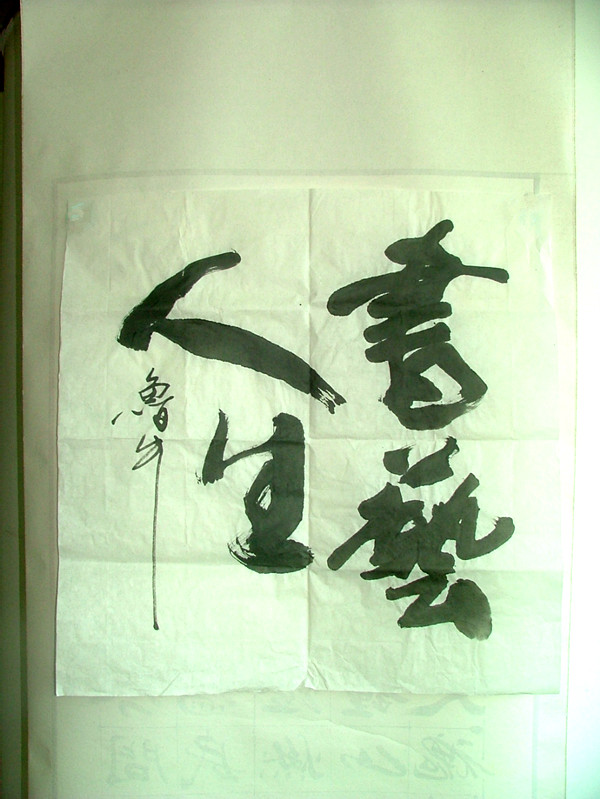 書藝
人生
魯牛